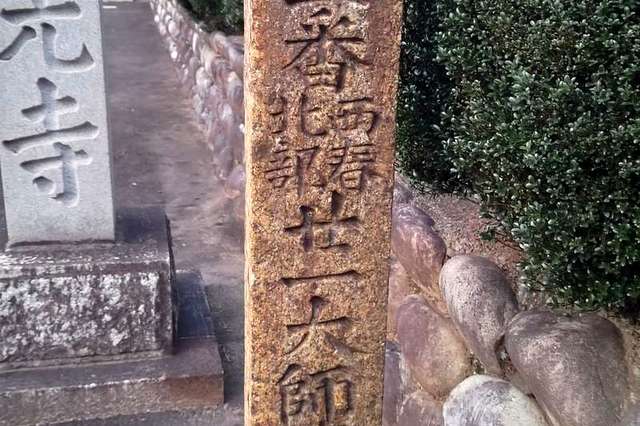 元寺
番
西春
北部
廿一大師